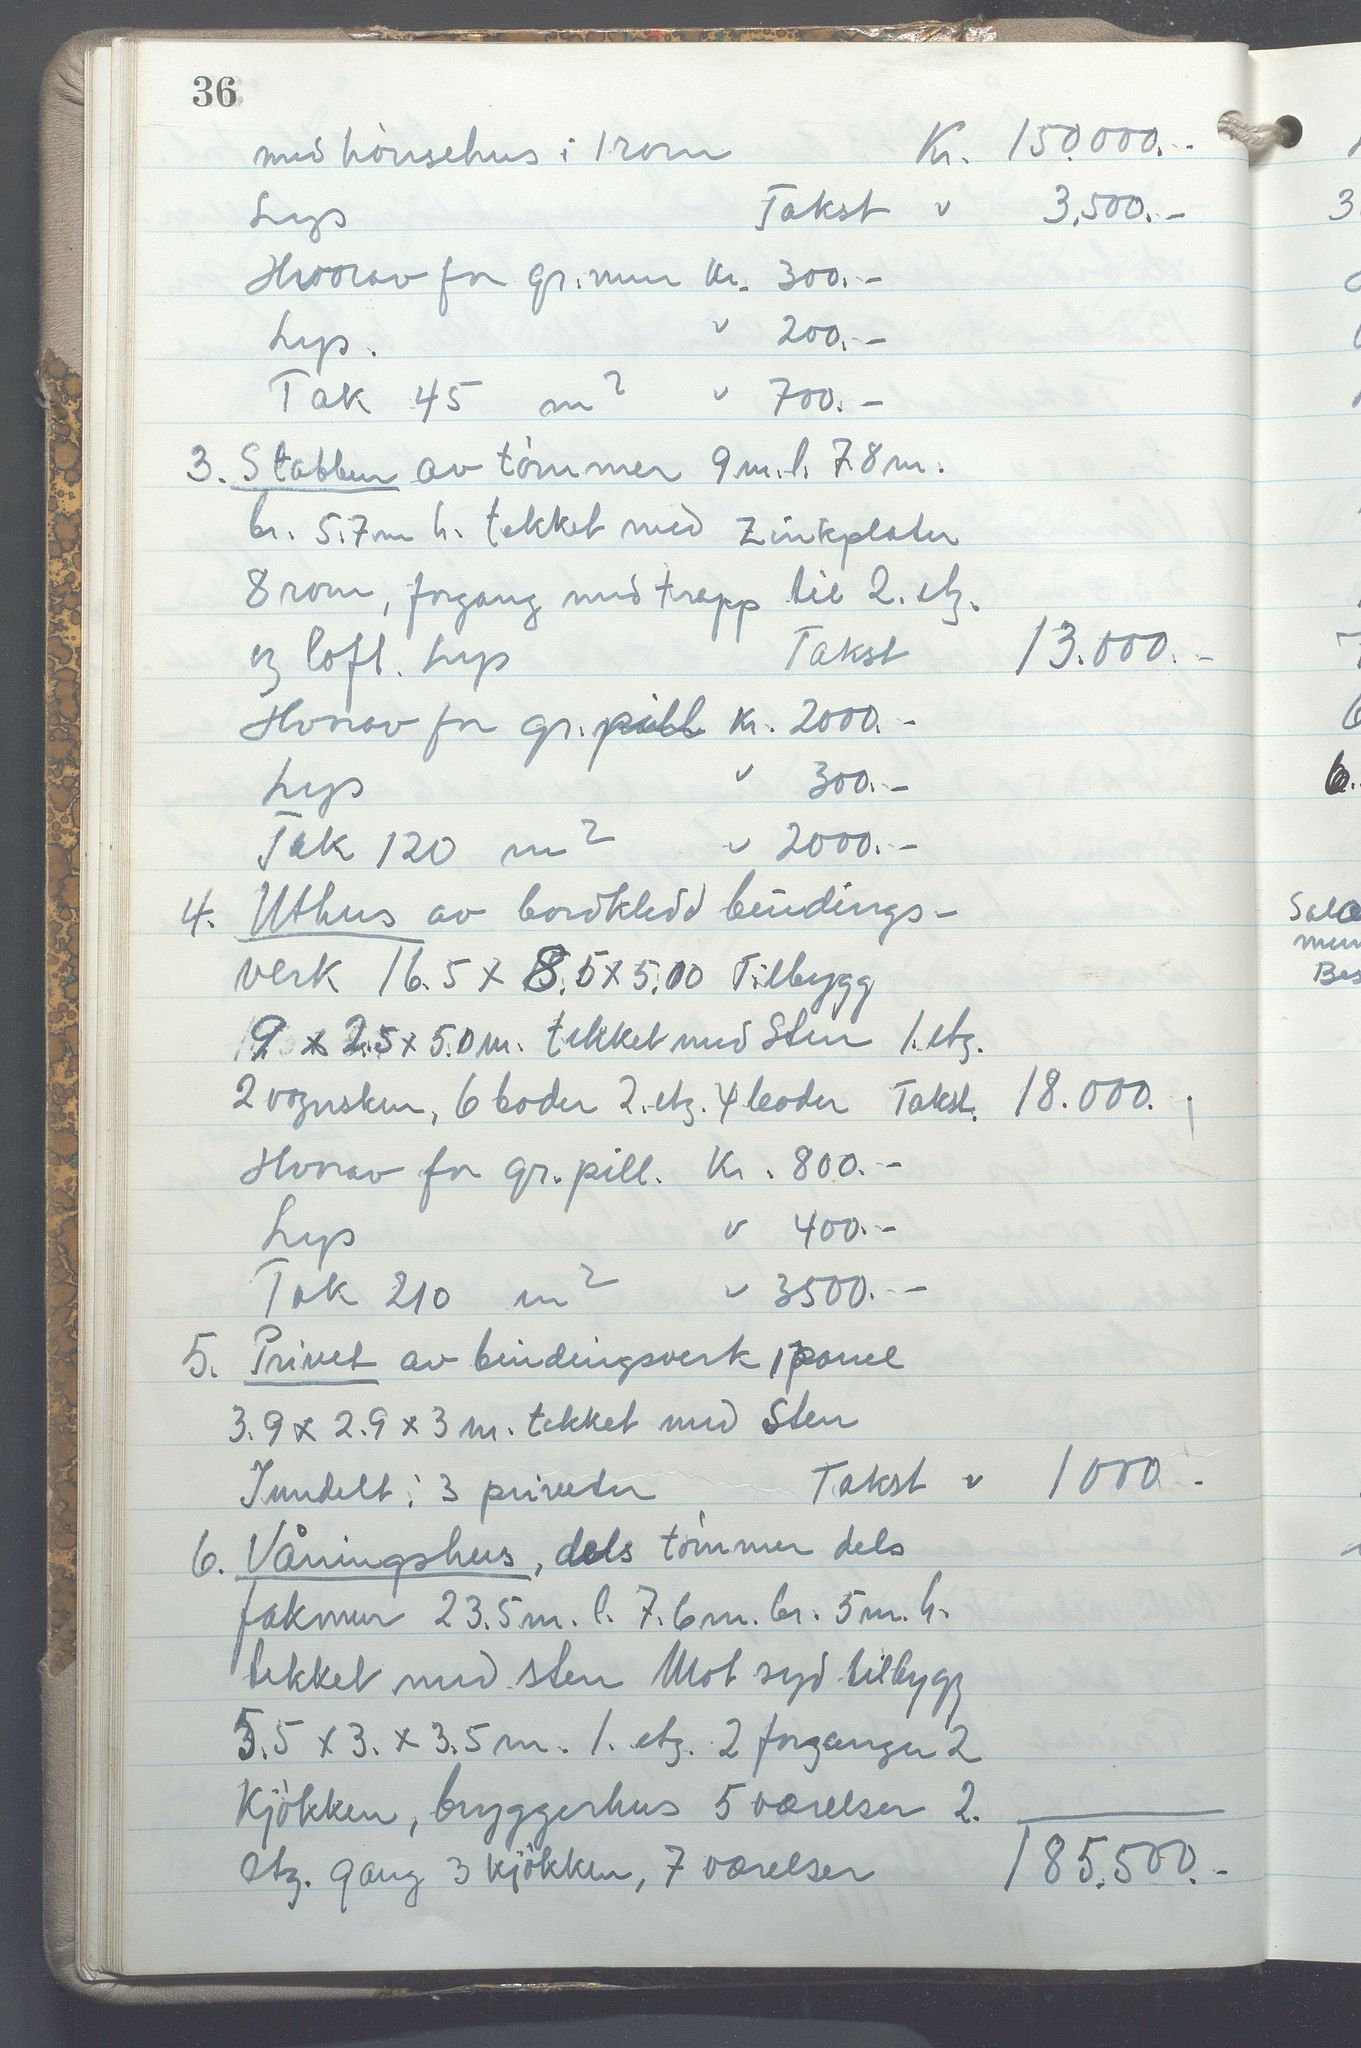 36
med hönsehus i 1 rom Kr. 150.000.-
Lys Takst " 3.500.-
Hvorav for gr.mur Kr. 300.-
Lys. " 200.-
Tak 45 m² " 700.-
3. Stabbur av tömmer 9 m. l. 7.8 m.
br. 5.7 m h. tekket med Zinkplater
8 rom, forgang med trapp til 2. etg.
og loft. Lys Takst 13.000.-
Hvorav for gr.pill Kr. 2000.-
Lys " 300.-
Tak 120 m² " 2000.-
4. Uthus av bordkledd bindings-
verk 16.5 x 8.5 x 5.00 Tilbygg
9 x 2.5 x 5.0 m. tekket med Sten 1. etg.
2 vognskur, 6 boder 2. etg. 4 boder Takst. 18.000.
Hvorav for gr. pill. Kr. 800.-
Lys " 400.-
Tak 210 m² " 3500.-
5. Privet av bindingsverk, panel
3.9 x 2.9 x 3 m. tekket med Sten
Inndelt i 3 priveter Takst " 1000.-
6. Våningshus, dels tömmer dels
fakmur 23.5 m. l. 7.6 m. br. 5 m. h.
tekket med sten Mot syd tilbygg
5.5 x 3. x 3.5 m. 1. etg. 2 forganger 2
Kjökken, bryggerhus 5 værelser 2.
etg. gang 3 kjökken, 7 værelser 185.500.-